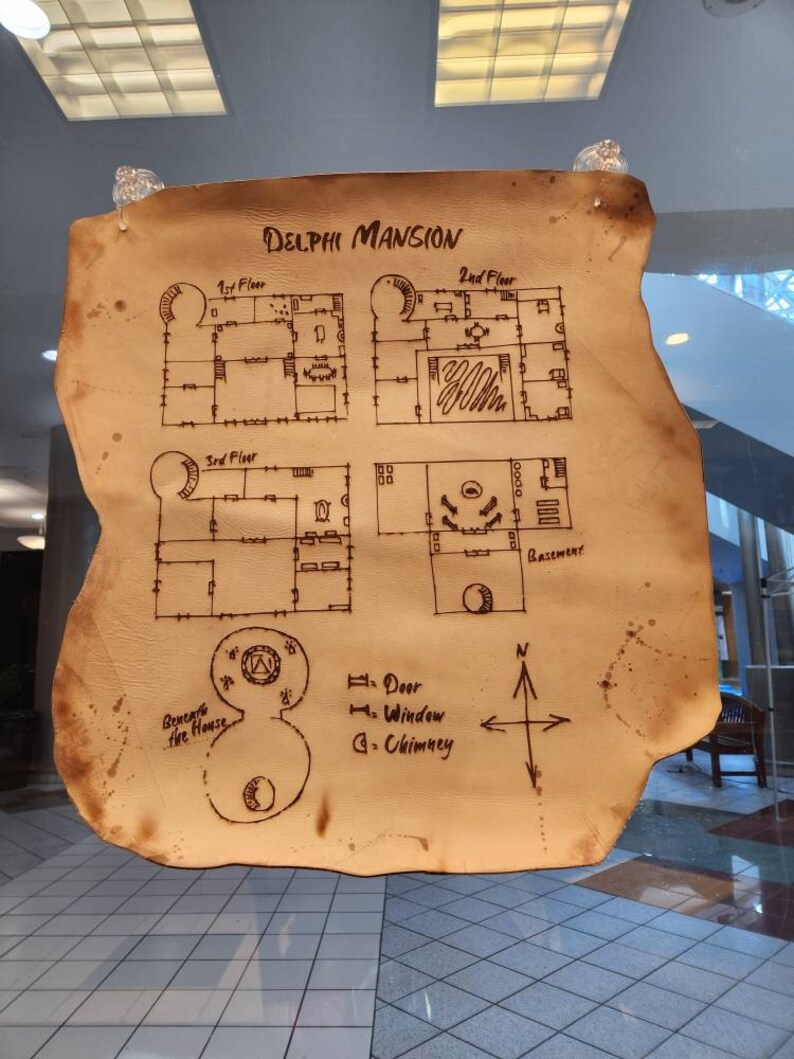 DELPHI MANSION
1st Floor
2nd Floor
3rd Floor
Basement
Beneath
the House
= Door
= Window
= Chimney
N